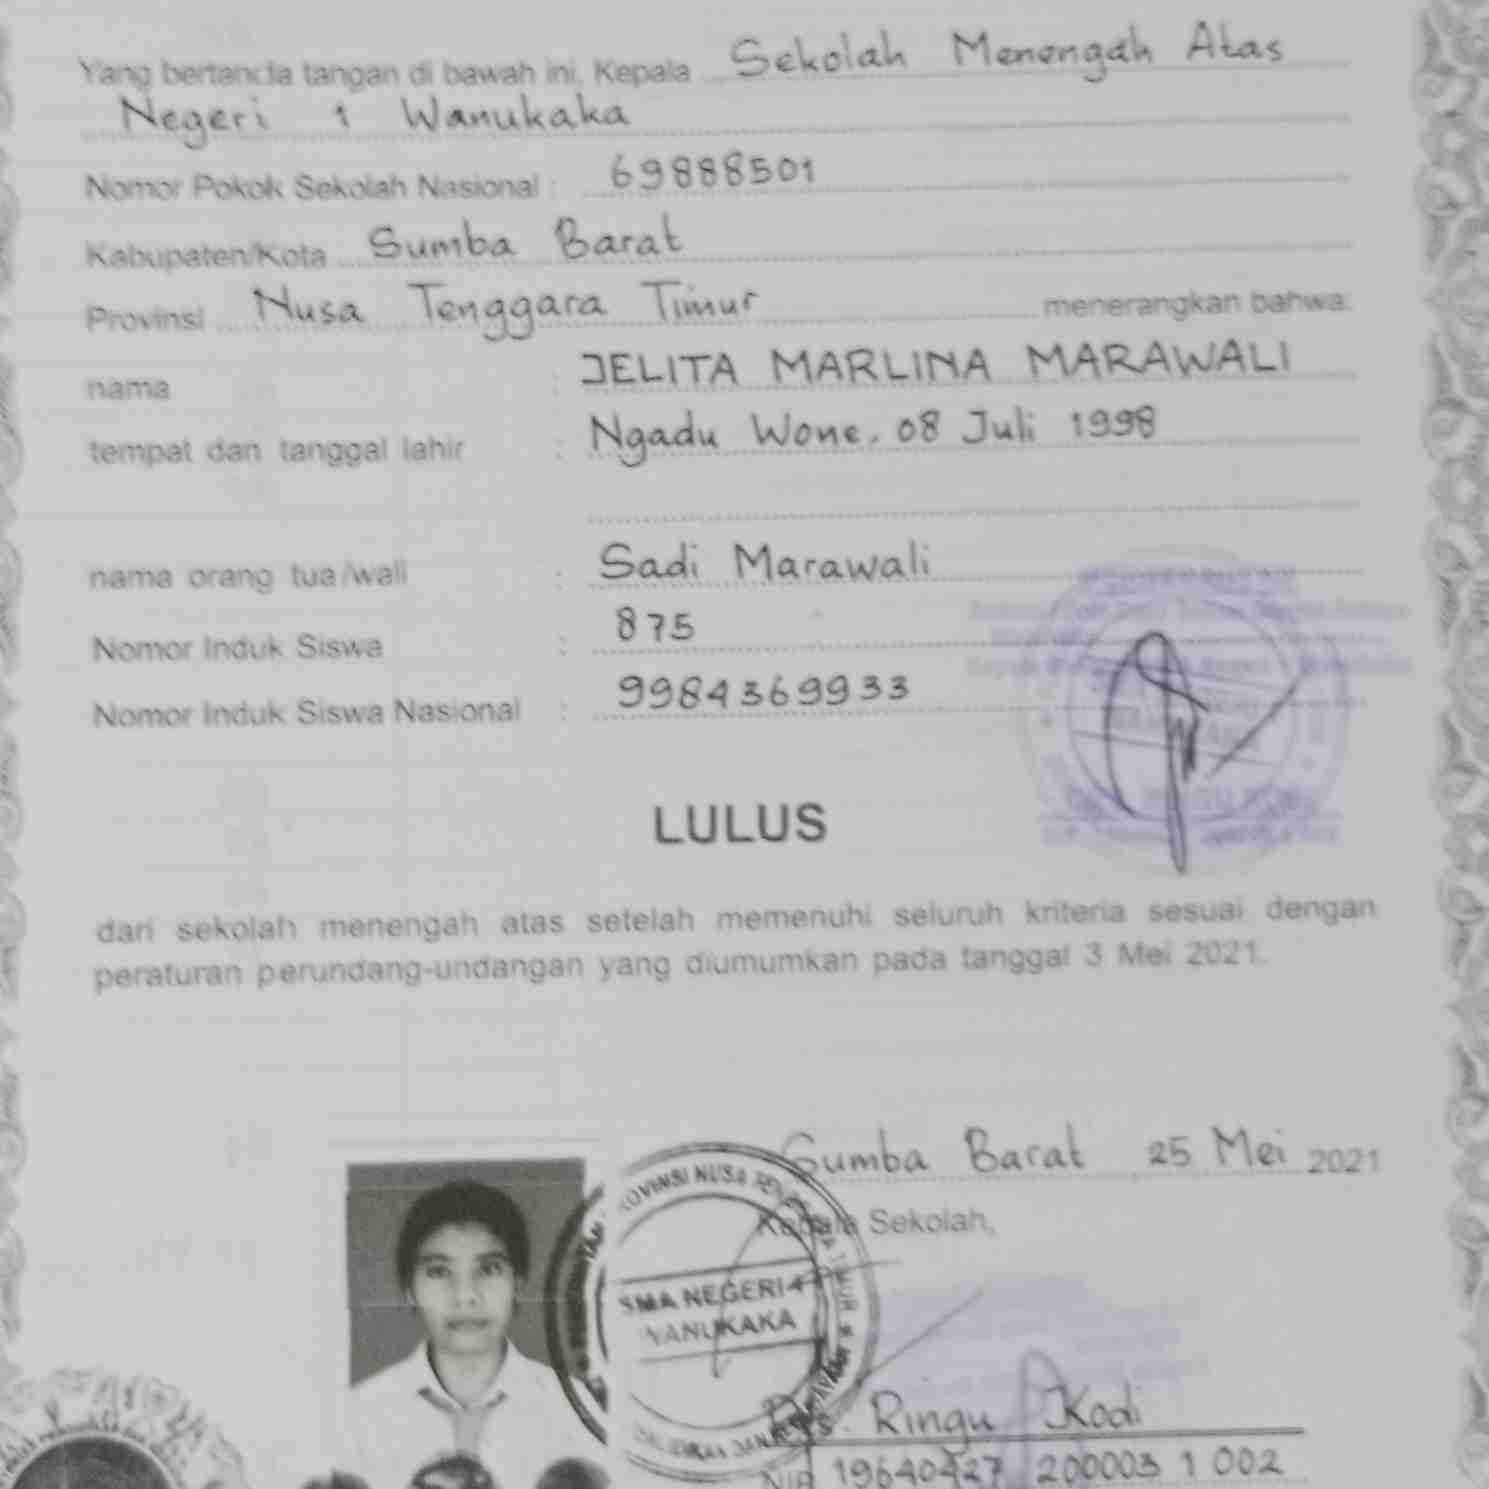 Yang bertanda tangan di bawah ini, Kepala Sekolah Menengah Atas
Negeri 1 Wanukaka
Nomor Pokok Sekolah Nasional : 69888501
Kabupaten/Kota Sumba Barat
Provinsi Nusa Tenggara Timur menerangkan bahwa:
nama : JELITA MARLINA MARAWALI
tempat dan tanggal lahir : Ngadu Wone, 08 Juli 1998
nama orang tua/wali : Sadi Marawali
Nomor Induk Siswa : 875
Nomor Induk Siswa Nasional : 9984369933
LULUS
dari sekolah menengah atas setelah memenuhi seluruh kriteria sesuai dengan
peraturan perundang-undangan yang diumumkan pada tanggal 3 Mei 2021.
Sumba Barat, 25 Mei 2021
Kepala Sekolah,
SMA NEGERI 1
WANUKAKA
Ringu Kodi
NIP 19640427 200003 1 002